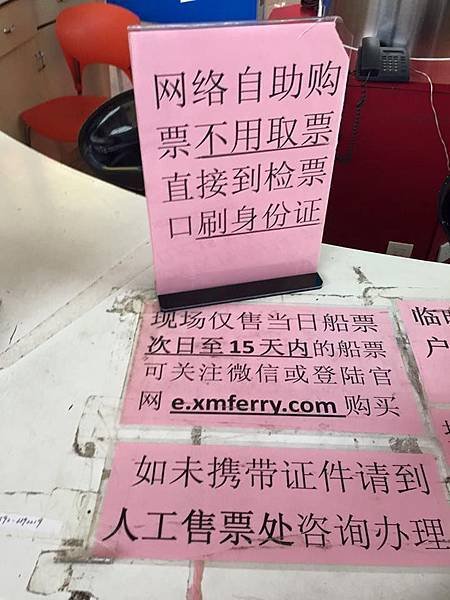 网络自助购
票不用取票
直接到检票
口刷身份证
现场仅售当日船票
次日至15天内的船票
可关注微信或登陆官
网 e.xmferry.com 购买
临
户
如未携带证件请到
人工售票处咨询办理